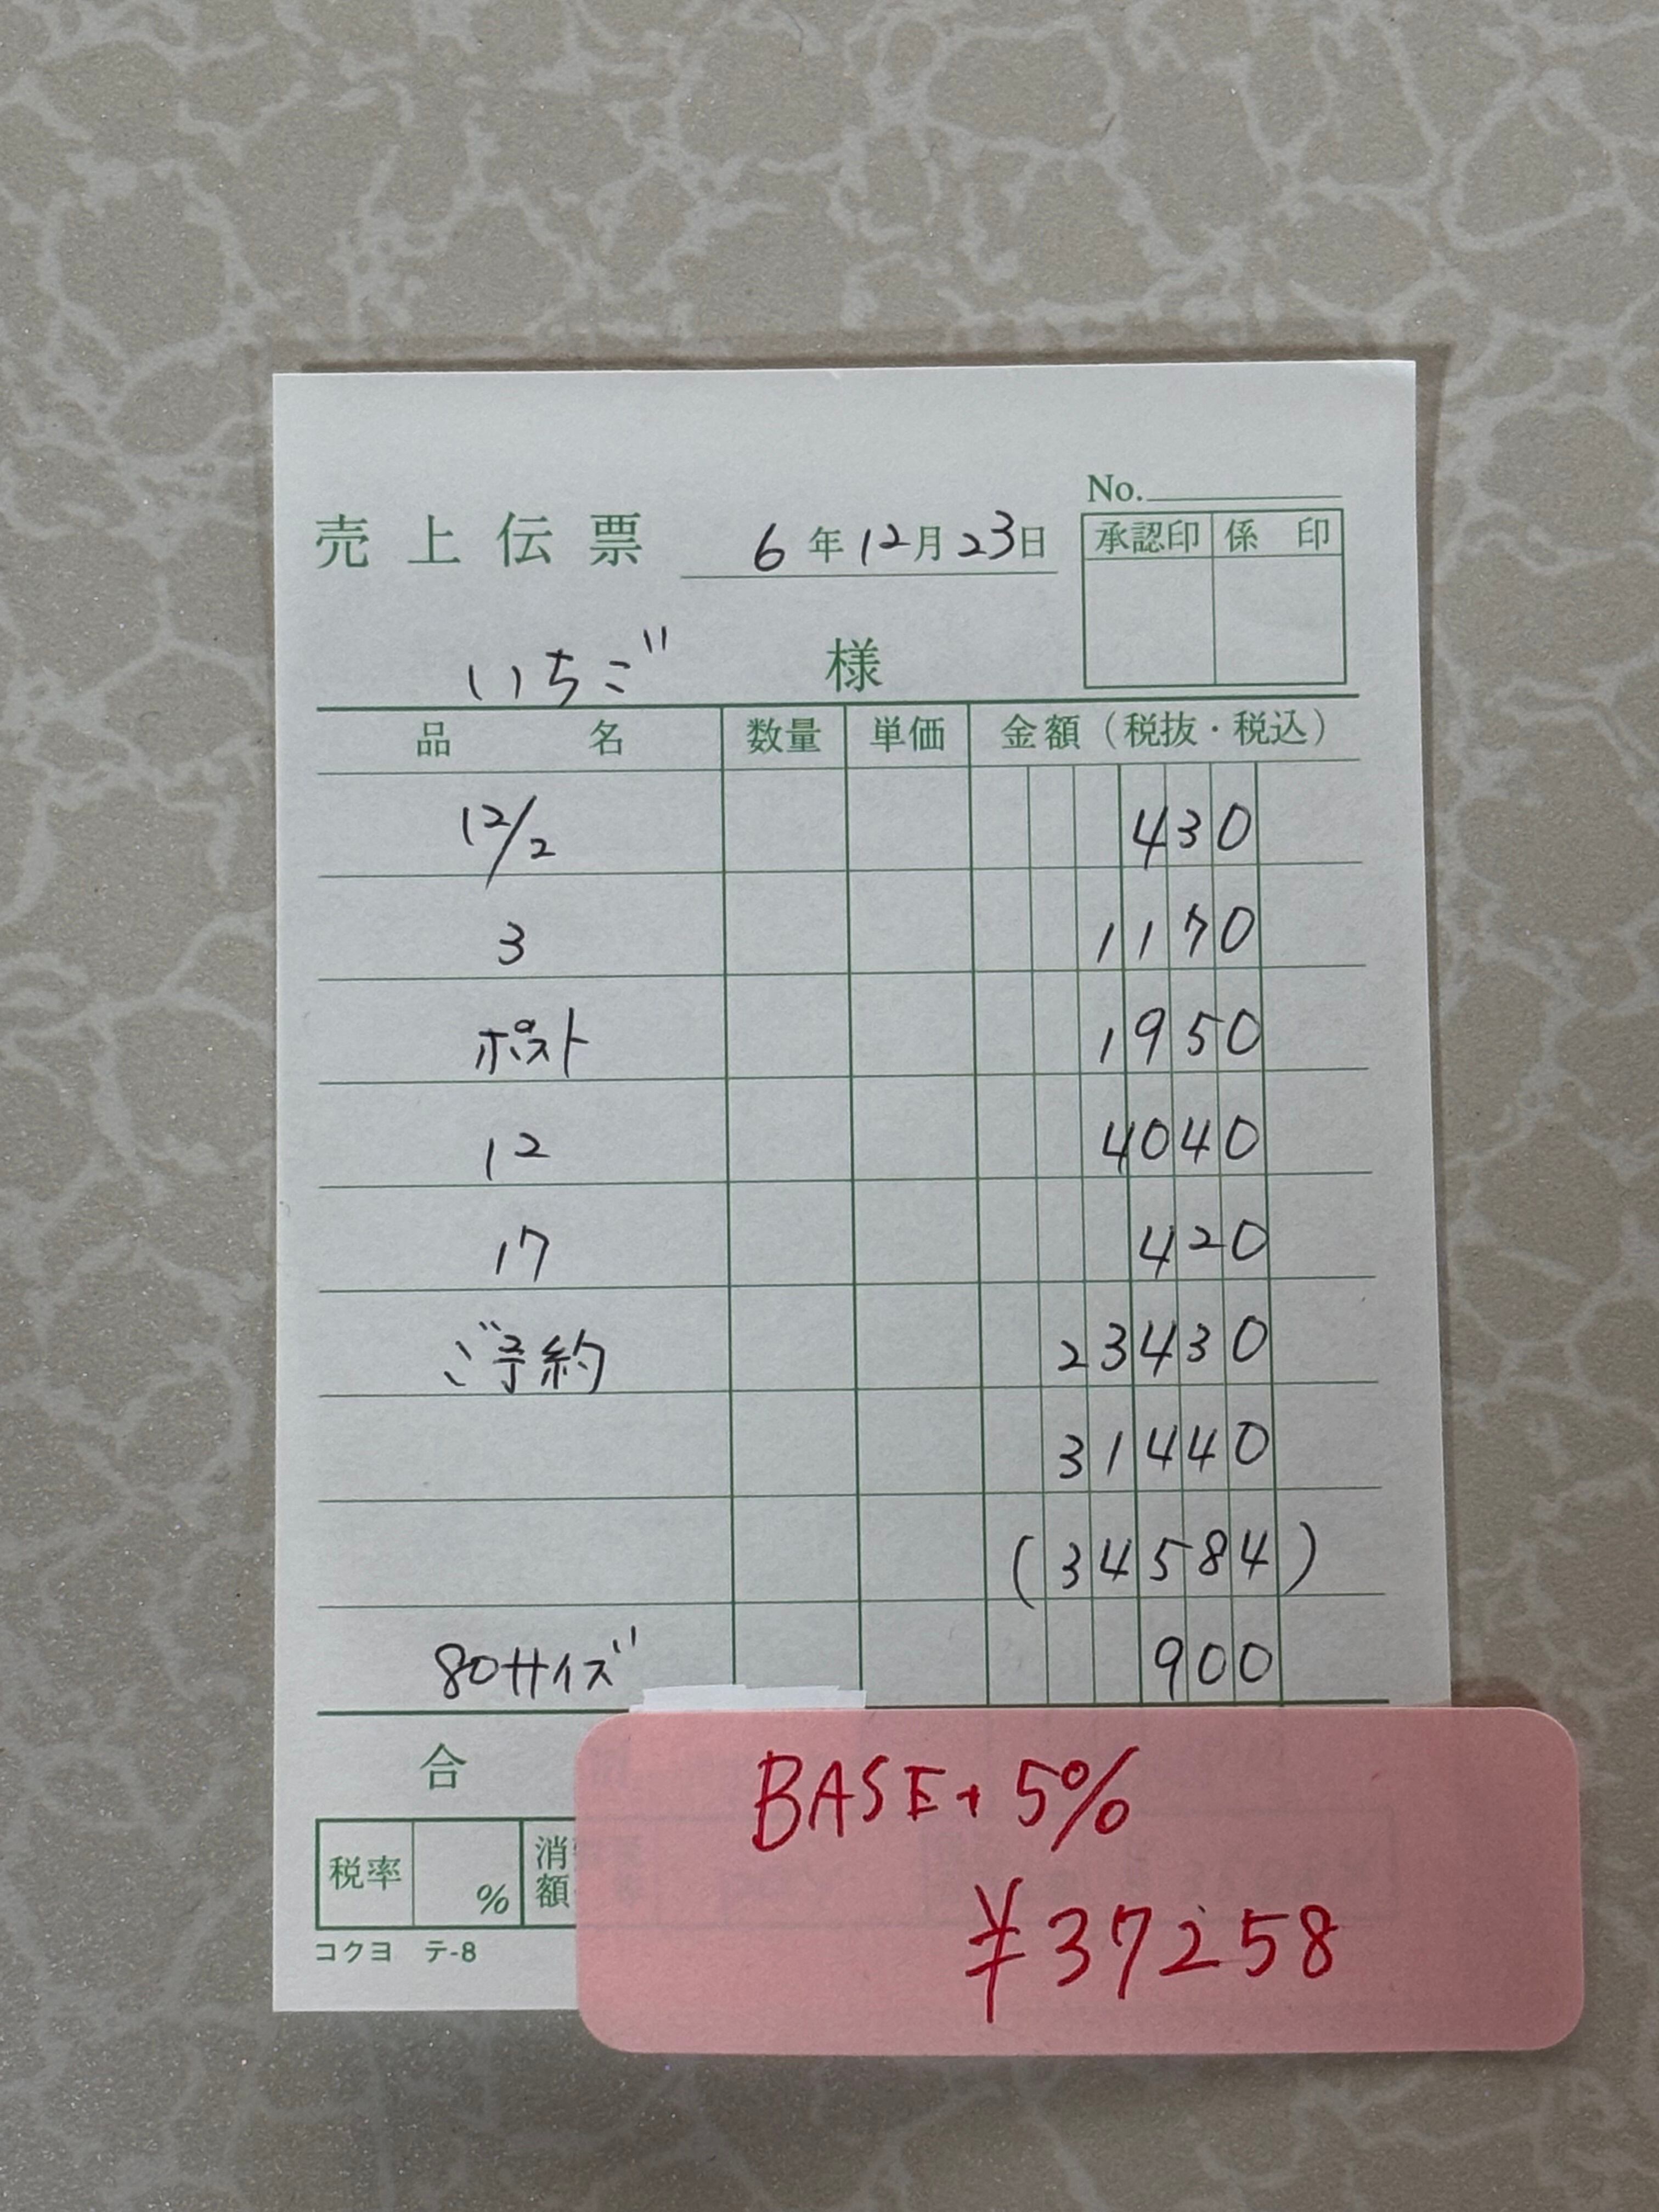 No.
売上伝票 6年12月23日
承認印 係印
いちご 様
品名 数量 単価 金額（税抜・税込）
12/2 430
3 1170
ポスト 1950
12 4040
17 420
ご予約 23430
31440
(34584)
80サイズ 900
合
BASE+5%
税率 % 消
額
¥37258
コクヨ テ-8